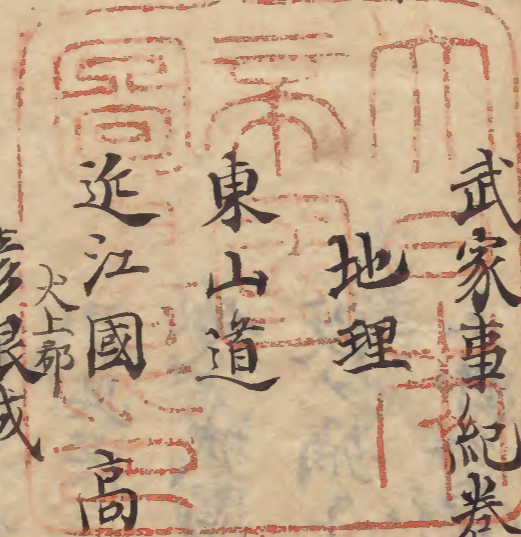 武家事紀卷
地理
東山道
近江國 高
犬上郡
彦根城